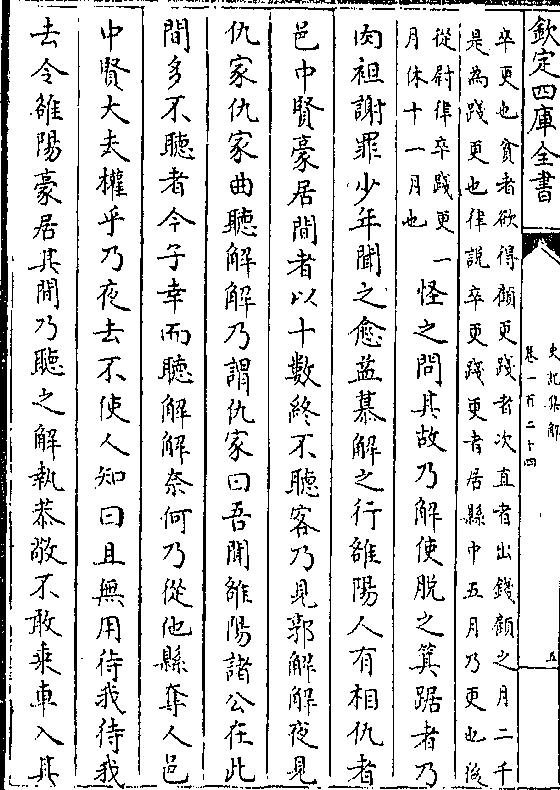 欽定四庫全書
史記集解
卷一百二十四
五
卒更也貧者欲得顧更踐者次直者出錢顧之月二千
是為踐更也律說卒更踐更者居縣中五月乃更也後
從尉律卒踐更一
月休十一月也
怪之問其故乃解使脫之箕踞者乃
肉袒謝罪少年聞之愈益慕解之行雒陽人有相仇者
邑中賢豪居間者以十數終不聽客乃見郭解解夜見
仇家仇家曲聽解解乃謂仇家曰吾聞雒陽諸公在此
間多不聽者今子幸而聽解解奈何乃從他縣奪人邑
中賢大夫權乎乃夜去不使人知曰且無用待我待我
去令雒陽豪居其間乃聽之解執恭敬不敢乘車入其